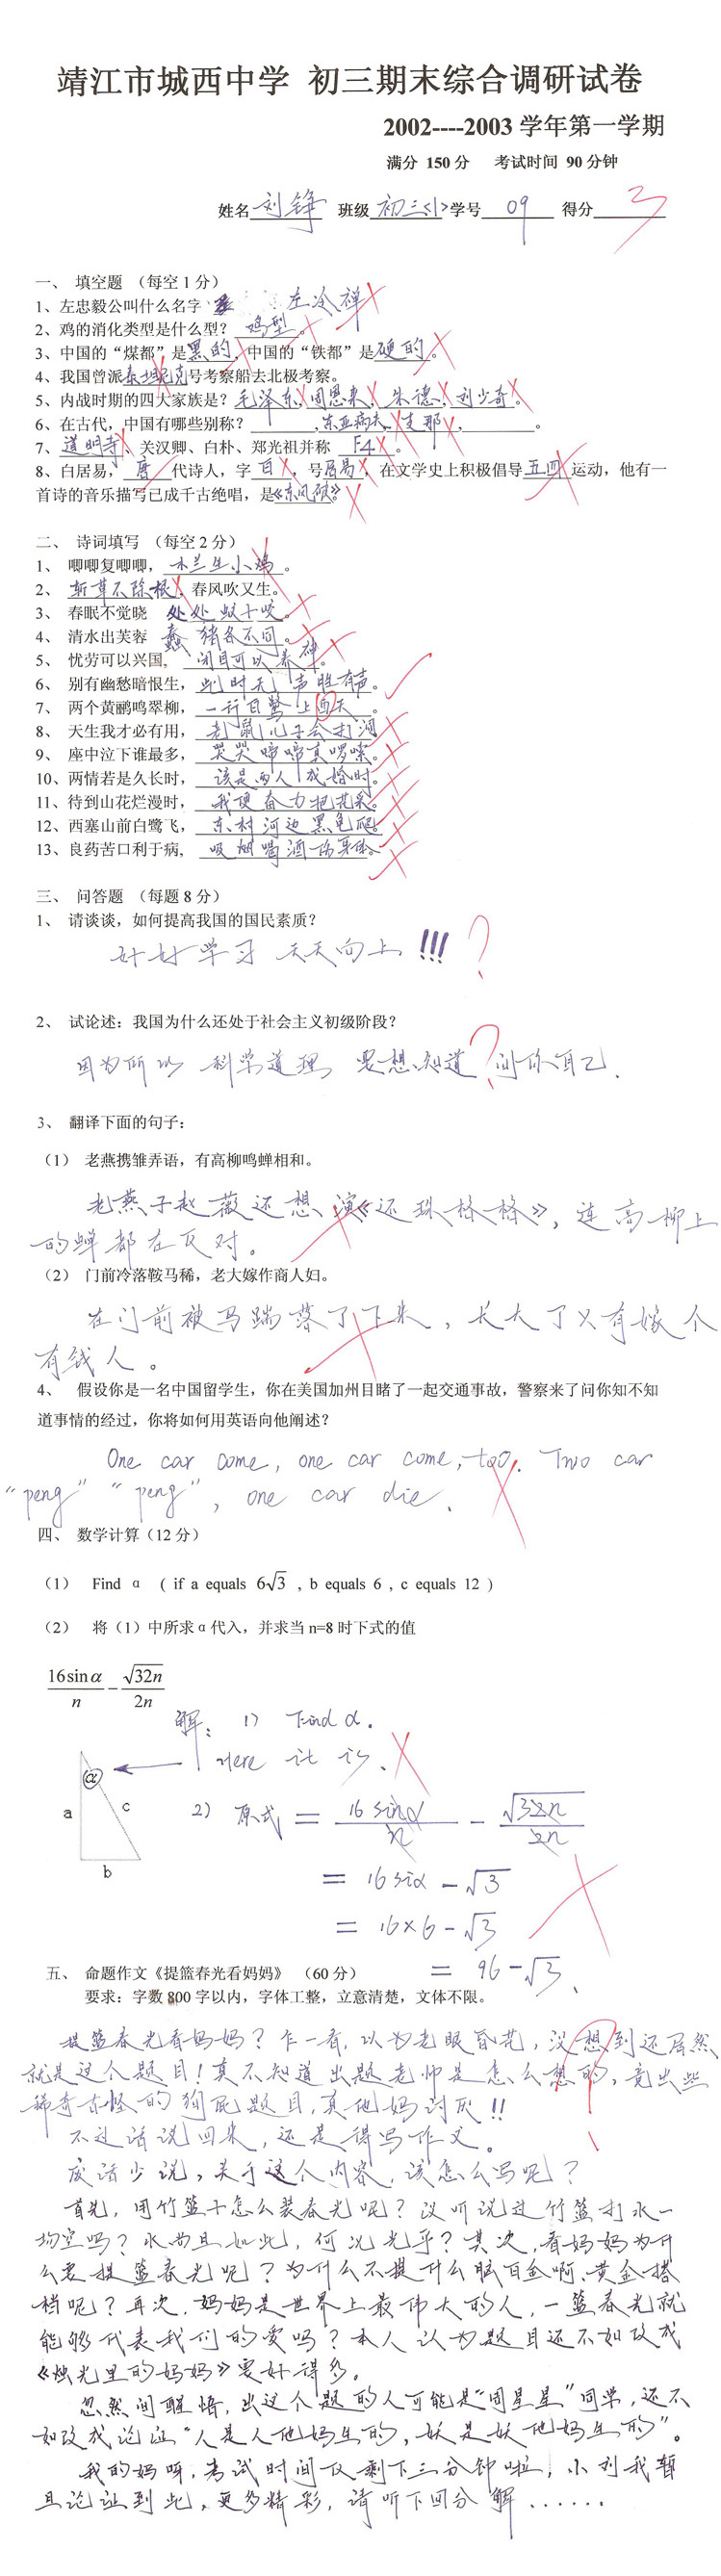 靖江市城西中学 初三期末综合调研试卷
2002----2003 学年第一学期
满分 150分 考试时间 90分钟
姓名 刘铮 班级 初三<1> 学号 09 得分 3
一、 填空题 （每空1分）
1、左忠毅公叫什么名字 左冷禅
2、鸡的消化类型是什么型？ 鸡型 。
3、中国的“煤都”是黑的,中国的“铁都”是硬的。
4、我国曾派泰坦尼克号考察船去北极考察。
5、内战时期的四大家族是？毛泽东,周恩来,朱德,刘少奇。
6、在古代，中国有哪些别称？ ,东亚病夫,支那, 。
7、道明寺、关汉卿、白朴、郑光祖并称 F4 。
8、白居易，唐 代诗人，字 白 ，号居易，在文学史上积极倡导五四运动，他有一
首诗的音乐描写已成千古绝唱，是《东风破》。
二、 诗词填写 （每空2分）
1、 唧唧复唧唧，木兰生小鸡。
2、 斩草不除根，春风吹又生。
3、 春眠不觉晓 处处蚊子咬。
4、 清水出芙蓉 蠢猪各不同。
5、 忧劳可以兴国, 闭目可以养神。
6、 别有幽愁暗恨生，此时无声胜有声。
7、 两个黄鹂鸣翠柳，一行白鹭上西天。
8、 天生我才必有用，老鼠儿子会打洞
9、 座中泣下谁最多，哭哭啼啼真啰嗦。
10、两情若是久长时，该是两人成婚时。
11、待到山花烂漫时，我便奋力把花采。
12、西塞山前白鹭飞，东村河边黑龟爬。
13、良药苦口利于病, 吸烟喝酒伤身体。
三、 问答题 （每题8分）
1、 请谈谈，如何提高我国的国民素质？
好好学习 天天向上!!! ?
2、 试论述：我国为什么还处于社会主义初级阶段？
因为所以 科学道理 要想知道 问你自己. ?
3、 翻译下面的句子：
（1） 老燕携雏弄语，有高柳鸣蝉相和。
老燕子赵薇还想演《还珠格格》，连高柳上
的蝉都在反对。
（2） 门前冷落鞍马稀，老大嫁作商人妇。
在门前被马踹落了下来，长大了只有嫁个
有钱人。
4、 假设你是一名中国留学生，你在美国加州目睹了一起交通事故，警察来了问你知不知
道事情的经过，你将如何用英语向他阐述？
One car come, one car come, too. Two car
“peng” “peng”, one car die.
四、 数学计算（12分）
（1） Find α ( if a equals 6√3 , b equals 6 , c equals 12 )
（2） 将（1）中所求α代入，并求当n=8时下式的值
16sinα/n - √32n/2n
解: 1) Find α.
Here it is.
α
a c
b
2) 原式 = 16 sinα/n - √32n/2n
= 16 siα - √3
= 16×6 - √3
= 96 - √3.
五、 命题作文《提篮春光看妈妈》 （60分）
要求：字数800字以内，字体工整，立意清楚，文体不限。
提篮春光看妈妈？乍一看，以为老眼昏花，没想到还居然
就是这个题目！真不知道出题老师是怎么想的，竟出些
稀奇古怪的狗屁题目，真他妈讨厌!!
不过话说回来，还是得写作文。
废话少说，关于这个内容，该怎么写呢？
首先，用竹篮子怎么装春光呢？没听说过竹篮打水一
场空吗？水尚且如此，何况光乎？其次，看妈妈为什
么要提篮春光呢？为什么不提什么脑白金啊、黄金搭
档呢？再次，妈妈是世界上最伟大的人，一篮春光就
能够代表我们的爱吗？本人认为题目还不如改成
《烛光里的妈妈》要好得多。
忽然间醒悟，出这个题的人可能是“周星星”同学，还不
如改成论证“人是人他妈生的，妖是妖他妈生的”。
我的妈呀，考试时间仅剩下三分钟啦，小刘我暂
且论证到此，更多精彩，请听下回分解......